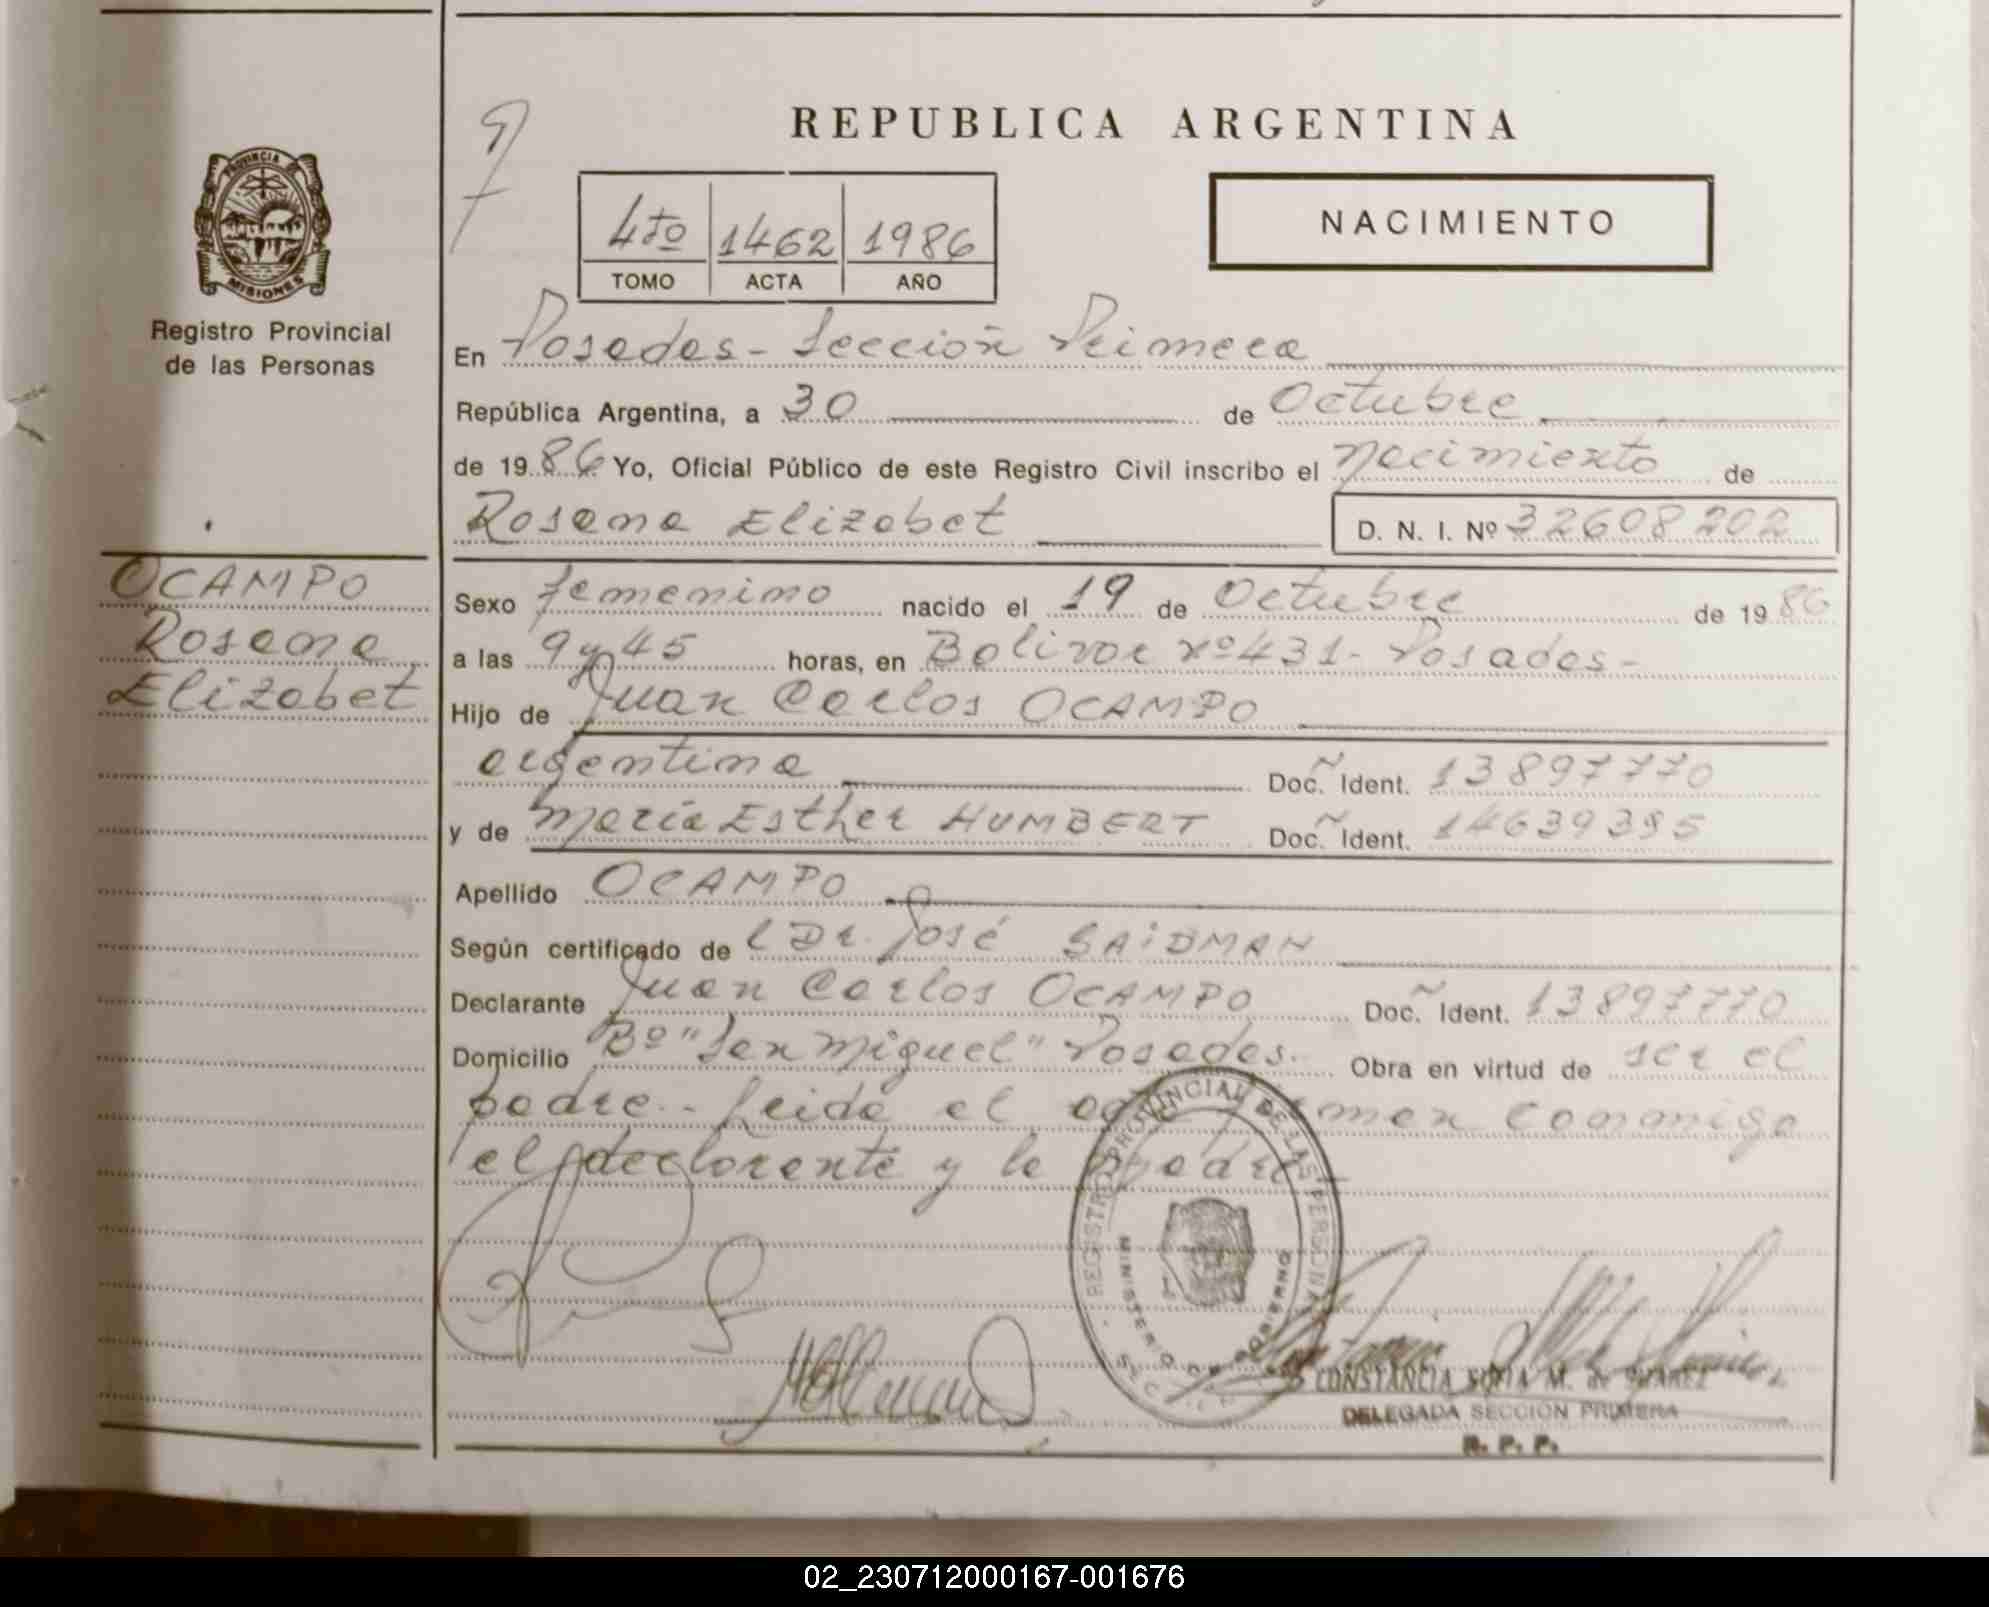 REPUBLICA ARGENTINA
PROVINCIA DE
MISIONES
Registro Provincial
de las Personas
4to 1462 1986
TOMO ACTA AÑO
NACIMIENTO
En Posadas - Sección Primera
República Argentina, a 30 de Octubre
de 1986 Yo, Oficial Público de este Registro Civil inscribo el nacimiento de
Rosana Elizabet D. N. I. Nº 32608202
OCAMPO
Rosana
Elizabet
Sexo femenino nacido el 19 de Octubre de 1986
a las 9 y 45 horas, en Bolivar nº 431 - Posadas -
Hijo de Juan Carlos OCAMPO
argentina Doc. Ident. 13897770
y de María Esther HUMBERT Doc. Ident. 14639395
Apellido OCAMPO
Según certificado de l Dr. José SAIDMAN
Declarante Juan Carlos OCAMPO Doc. Ident. 13897770
Domicilio Bº "San Miguel" Posadas. Obra en virtud de ser el
padre.- Leida el acta firman conmigo
el declarante y la madre
REGISTRO PROVINCIAL DE LAS PERSONAS
MINISTERIO DE GOBIERNO
CONSTANCIA SOFIA M. de SUAREZ
DELEGADA SECCION PRIMERA
R. P. P.
02_230712000167-001676